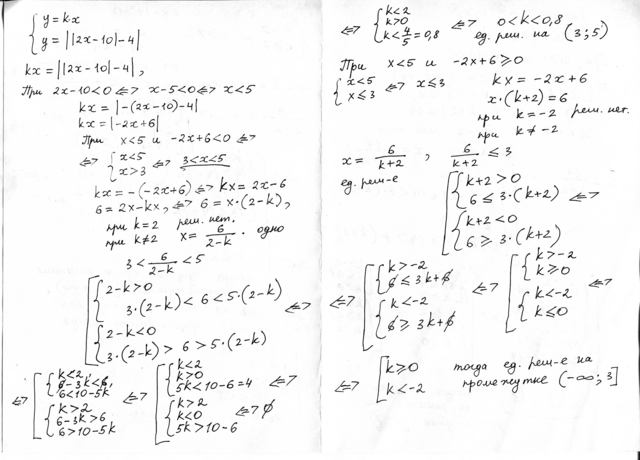 { y = kx
y = ||2x-10|-4|
kx = ||2x-10|-4|,
При 2x-10<0 ⇔ x-5<0 ⇔ x<5
kx = |-(2x-10)-4|
kx = |-2x+6|
При x<5 и -2x+6<0 ⇔
⇔ { x<5
x>3 ⇔ 3<x<5
kx = -(-2x+6) ⇔ kx = 2x-6
6 = 2x-kx, ⇔ 6 = x·(2-k),
при k=2 реш. нет.
при k≠2 x = 6/(2-k). одно
3 < 6/(2-k) < 5
[ { 2-k>0
3·(2-k) < 6 < 5·(2-k)
{ 2-k<0
3·(2-k) > 6 > 5·(2-k) ⇔
⇔ [ { k<2,
6-3k<6,
6<10-5k
{ k>2
6-3k>6
6>10-5k
⇔ [ { k<2
k>0
5k<10-6=4 ⇔
{ k>2
k<0
5k>10-6 ⇔ ∅
⇔ { k<2
k>0
k<4/5=0,8 ⇔ 0<k<0,8
ед. реш. на (3;5)
При x<5 и -2x+6≥0
{ x<5
x≤3 ⇔ x≤3
kx = -2x+6
x·(k+2)=6
при k=-2 реш. нет.
при k≠-2
x = 6/(k+2), 6/(k+2) ≤ 3
ед. реш-е
[ { k+2>0
6≤3·(k+2) ⇔
{ k+2<0
6≥3·(k+2)
⇔ [ { k>-2
6≤3k+6
{ k<-2
6≥3k+6
⇔ [ { k>-2
k≥0
{ k<-2
k≤0 ⇔
⇔ [ k≥0
k<-2
тогда ед. реш-е на
промежутке (-∞;3]